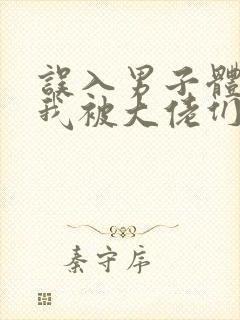 誤入男子體
我被大佬们
秦守序